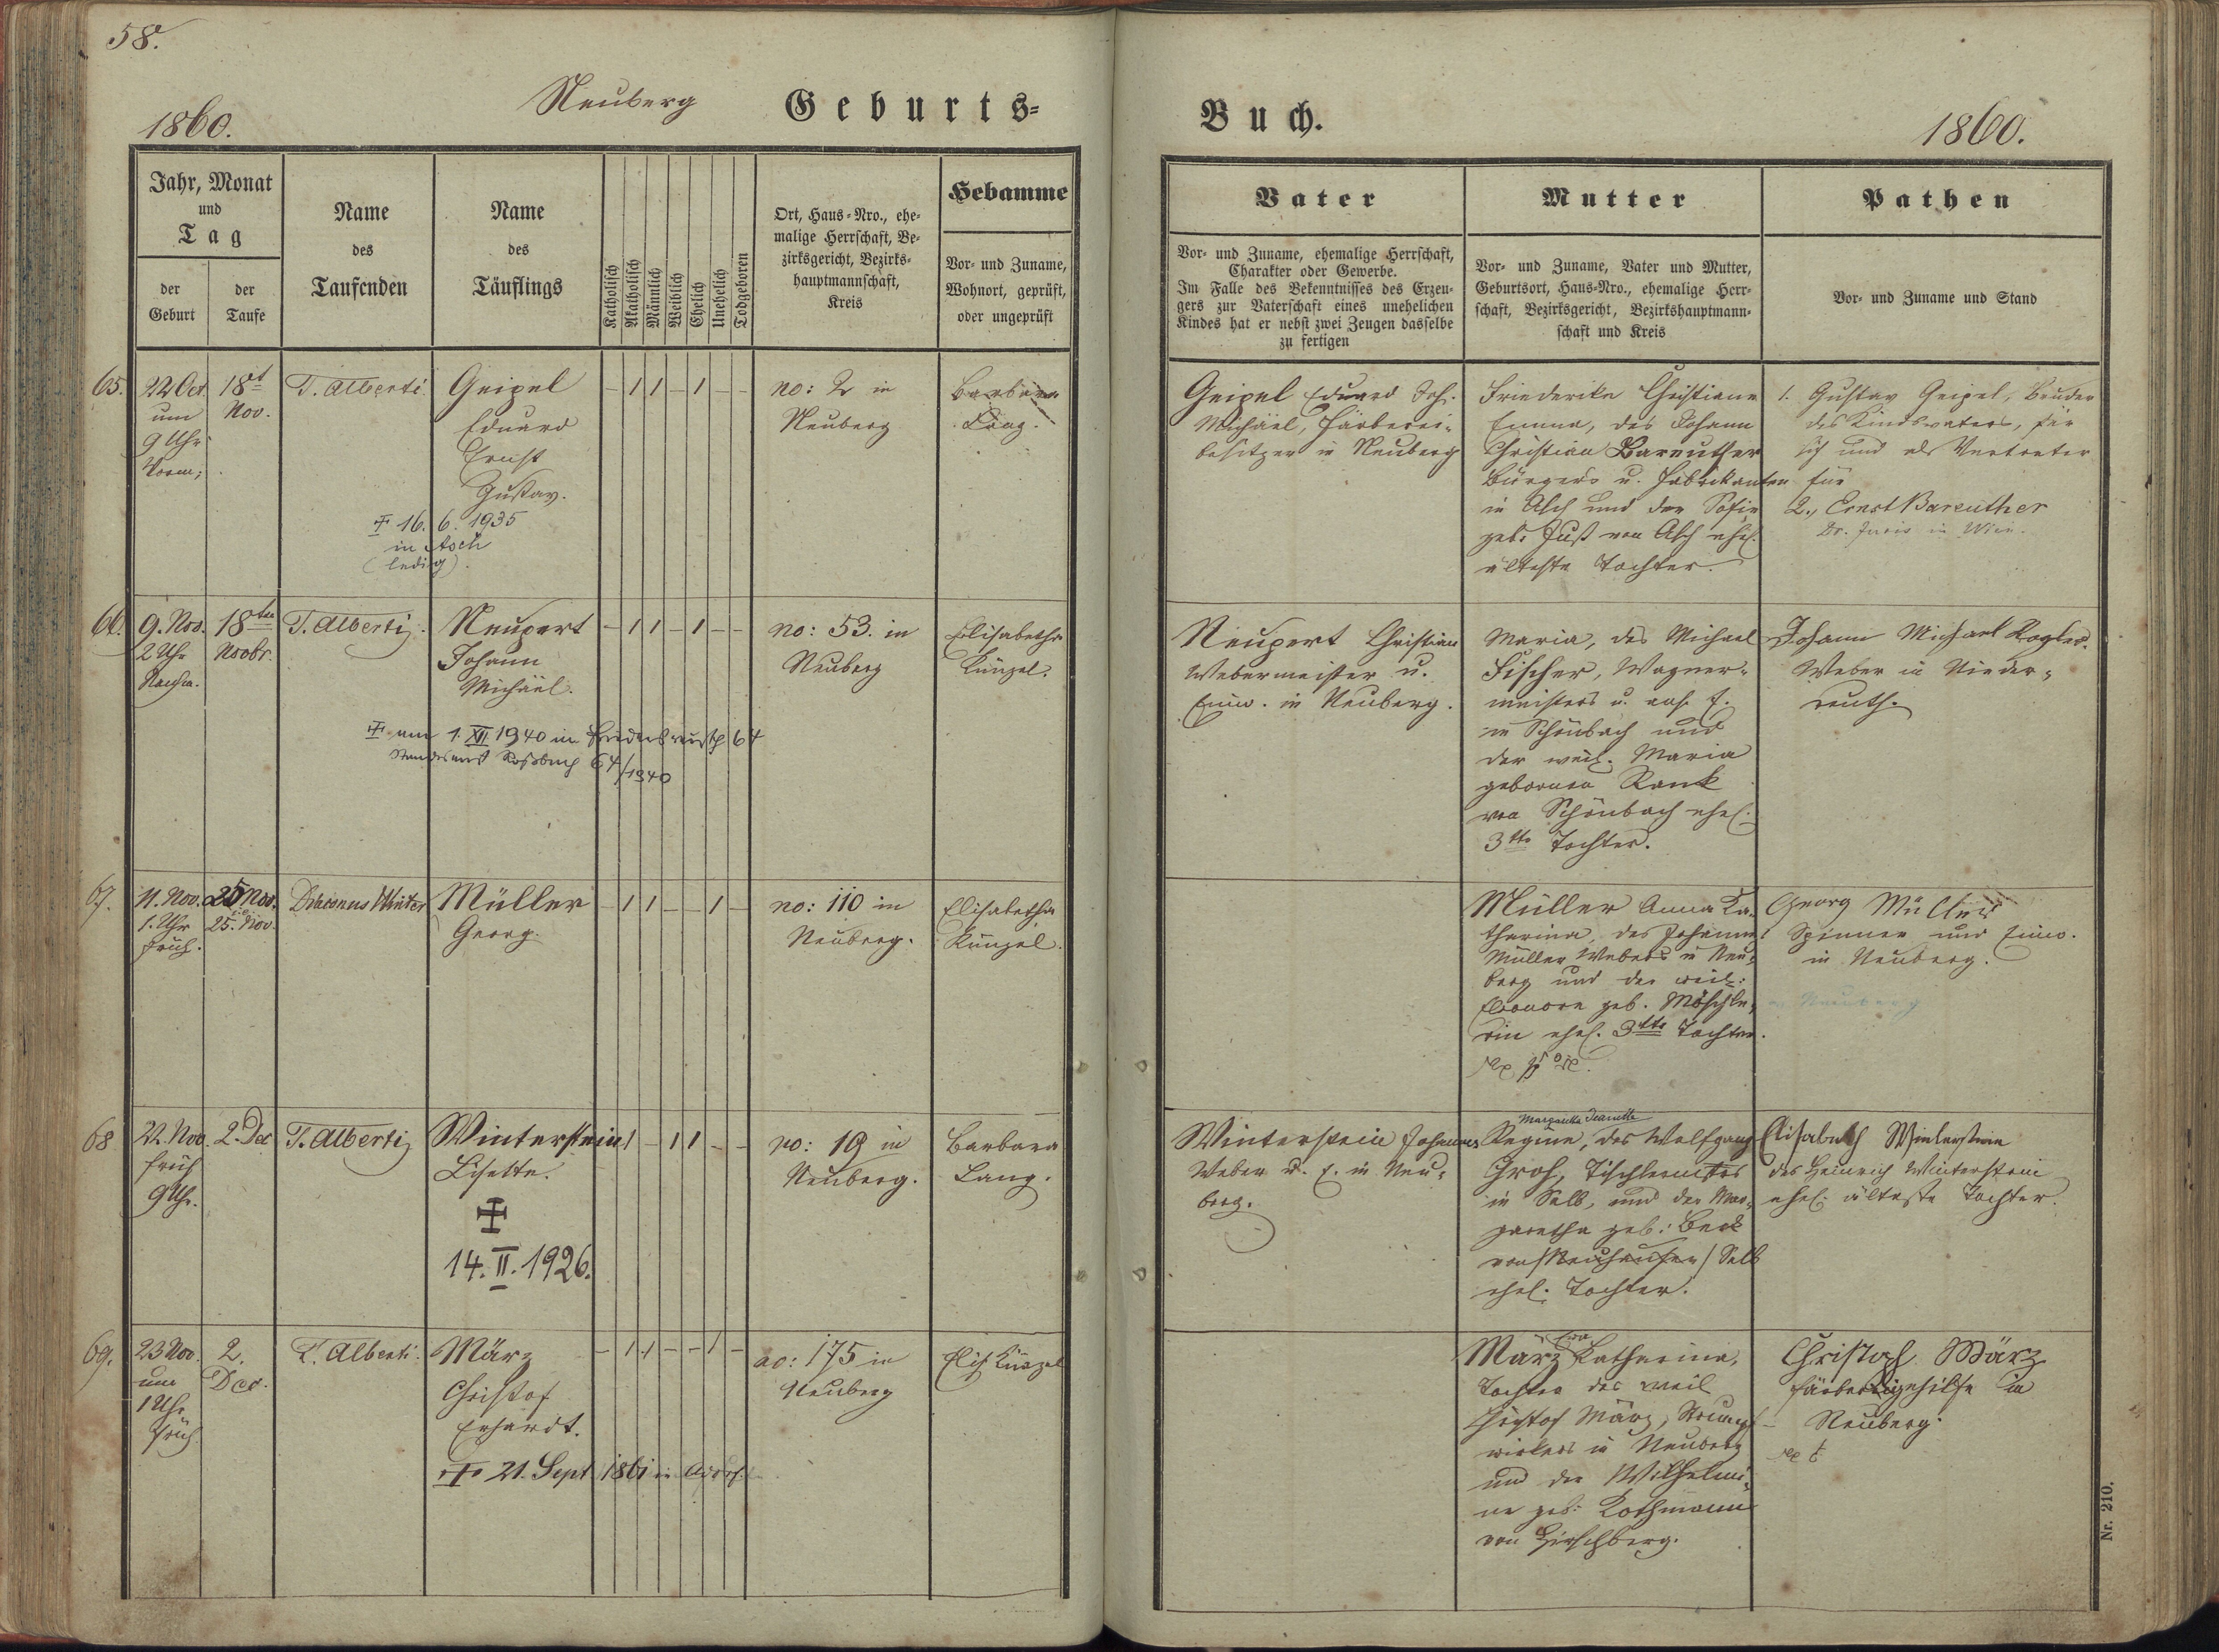 58.
1860.
Neuberg
Geburts=
Jahr, Monat
und
Tag
der
Geburt
der
Taufe
Name
des
Taufenden
Name
des
Täuflings
Katholisch
Akatholisch
Männlich
Weiblich
Ehelich
Unehelich
Todgeboren
Ort, Haus=Nro., ehe=
malige Herrschaft, Be=
zirksgericht, Bezirks=
hauptmannschaft,
Kreis
Hebamme
Vor= und Zuname,
Wohnort, geprüft,
oder ungeprüft
65.
22 Oct
um
9 Uhr
Vorm;
18t
Nov.
T. Alberti
Geipel
Eduard
Ernst
Gustav.
– 1 1 – 1 – –
no: 2 in
Neuberg
Barbara
Lang.
16. 6. 1935
in Asch
(ledig).
66.
9. Nov.
2 Uhr
Nachm.
18ten
Novbr.
T. Alberti
Neupert
Johann
Michäel.
– 1 1 – 1 – –
no: 53. in
Neuberg
Elisabetha
Künzel.
am 1. XII 1940 in Friedersreuth 64
Standesamt Roßbach 64/1940
67.
11. Nov.
1. Uhr
früh.
25 Nov.
25. Nov.
Diaconus Winter
Müller
Georg.
– 1 1 – – 1 –
no: 110 in
Neuberg.
Elisabetha
Künzel.
68
22. Nov.
früh
9 Uhr.
2. Dec
T. Alberti
Winterstein
Lisette.
1 – 1 1 – –
no: 19 in
Neuberg.
Barbara
Lang.
14. II. 1926.
69.
23 Nov.
um
1 Uhr
früh
2.
Dec.
T. Alberti.
März
Christof
Erhardt.
– 1 1 – – 1 –
no: 175 in
Neuberg
Elis Künzel
21. Sept 1861 in
Buch.
1860.
Vater
Vor= und Zuname, ehemalige Herrschaft,
Charakter oder Gewerbe.
Im Falle des Bekenntnisses des Erzeu=
gers zur Vaterschaft eines unehelichen
Kindes hat er nebst zwei Zeugen dasselbe
zu fertigen
Mutter
Vor= und Zuname, Vater und Mutter,
Geburtsort, Haus=Nro., ehemalige Herr=
schaft, Bezirksgericht, Bezirkshauptmann=
schaft und Kreis
Pathen
Vor= und Zuname und Stand
Geipel Eduard Joh.
Michäel, Färberei=
besitzer in Neuberg
Friederika Christiane
Emma, des Johann
Christian Bareuther
Bürgers u. Fabrikanten
in Asch und der Sofie
geb: Just von Asch ehel.
älteste Tochter.
1. Gustav Geipel, Bruder
des Kindsvaters, für
sich und als Vertreter
für
2., Ernst Bareuther
Dr. Juris in Wien.
Neupert Christian
Webermeister u.
Einw. in Neuberg.
Maria, des Michael
Fischer, Wagner=
meisters u. E.
in Schönbach und
der weil. Maria
gebornen Rank
von Schönbach ehel.
3tte Tochter.
Johann Michael Kogler
Weber in Nieder=
reuth.
Müller Anna Ka=
tharina, des Johann
Müller Webers in Neu=
berg und der weil:
Eleonore geb. Möschle=
rin ehel. 3tte Tochter.
Georg Müller
Spinner und Einw.
in Neuberg.
Winterstein Johannes
Weber u. E. in Neu=
berg.
Margaretha Jeanette
Regine, des Wolfgang
Groh, Tischlermstrs
in Selb, und der Mar=
garetha geb: Beck
von Neuhausen/Selb
ehel. Tochter.
Elisabeth Winterstein
des Heinrich Winterstein
ehel. älteste Tochter.
Eva
März Katharina,
Tochter des weil
Christof März, Strumpf=
wirkers in Neuberg
und der Wilhelmi=
ne geb: Rothmann
von Hirschberg.
Christoph März
Färbereigehilfe in
Neuberg.
Nr. 210.